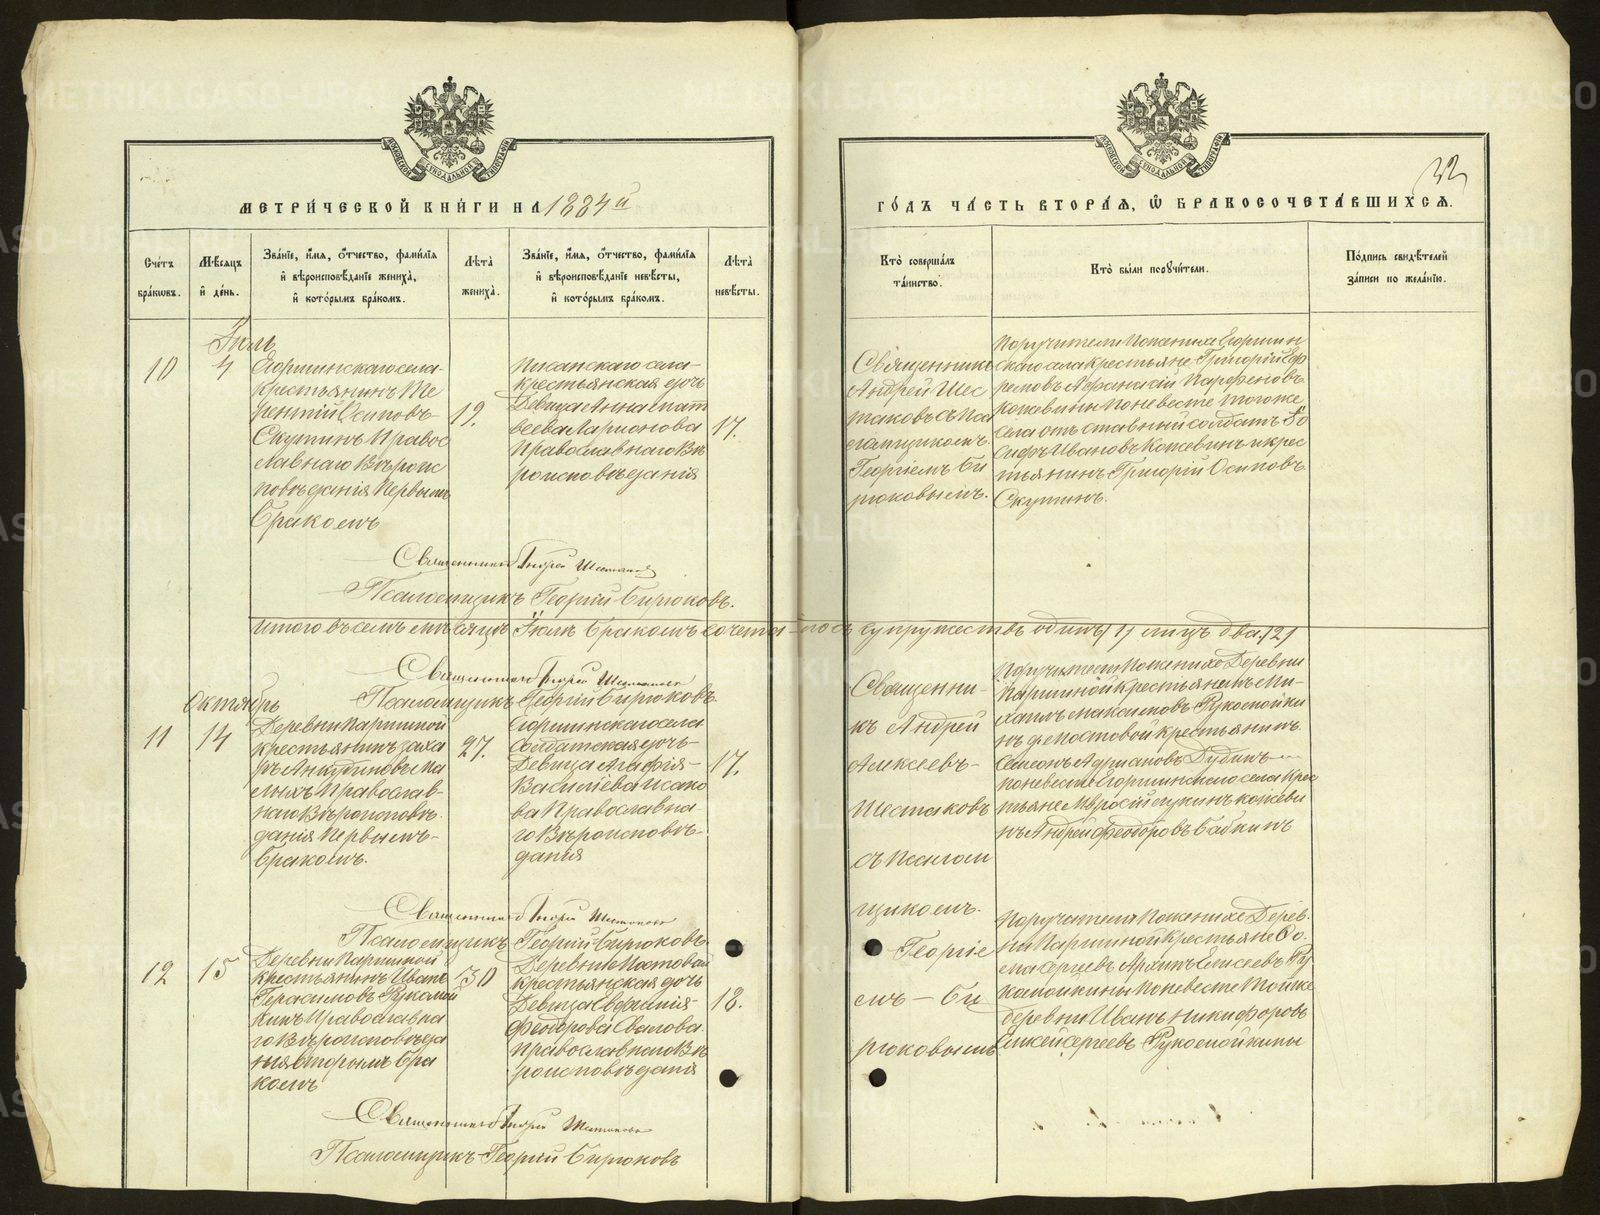 32
МЕТРИ́ЧЕСКОЙ КНИ́ГИ НА 1884й
ГО́ДЪ ЧА́СТЬ ВТОРА́Я, Ѡ БРАКОСОЧЕТА́ВШИХСЯ.
Сче́тъ бра́ковъ.
Мѣ́сяцъ и́ де́нь.
Зва́нїе, и́мя, ѻ́тчество, фами́лїя и́ вѣроисповѣ́данїе жениха̀, и́ кото́рымъ бра́комъ.
Лѣ́та жениха̀.
Зва́нїе, и́мя, ѻ́тчество, фами́лїя и́ вѣроисповѣ́данїе невѣ́сты, и́ кото́рымъ бра́комъ.
Лѣ́та невѣ́сты.
Кто̀ соверша́лъ та́инство.
Кто̀ бы́ли поручи́тели.
По́дпись свидѣ́телей за́писи по жела́нїю.
Іюль
10
4
Егоршинскаго села
крестьянинъ Те
рентій Осиповъ
Скутинъ Правос
лавнаго Вѣроис
повѣданія Первымъ
Бракомъ
19.
Писанскаго села
крестьянская дочь
Девица Анна Мат
веева Ларионова
Православнаго Вѣ
роисповѣданія
17.
Священникъ
Андрей Шес
таковъ съ Пса
ломщикомъ
Георгіемъ Би
рюковымъ.
Поручители По женихе Егоршин
скаго села крестьяне Григорій Еф
ремовъ Афанасій Парфеновъ
Кожевины По невесте того же
села отставный солдатъ Іо
сифъ Ивановъ Кожевинъ и крес
тьянинъ Григорій Осиповъ
Скутинъ.
Священникъ Андрей Шестаковъ
Псаломщикъ Георгій Бирюковъ.
Итого въ семъ мѣсяцѣ Іюлѣ Бракомъ сочета-лось супружествъ одинъ /1/ лицъ два /2/
Священникъ Андрей Шестаковъ
Псаломщикъ Георгій Бирюковъ.
Октябрь
11
14
Деревни Паршиной
крестьянинъ Заха
ръ Анкудиновъ Ма
лыхъ Православ-
наго Вѣроисповѣ
данія Первымъ-
Бракомъ.
27.
Егоршинскаго села
Солдатская дочь-
Девица Агафія-
Василіева Исако
ва Православна-
го Вѣроисповѣ-
данія
17.
Священни-
къ Андрей
Алексеевъ-
Шестаковъ
съ Псалом
щикомъ.
Георгіе
мъ - Би
рюковымъ
Поручители По женихе Деревни
Паршиной крестьянинъ Ми-
хаилъ Максимовъ Рукомойки
нъ д. Мостовой крестьянинъ
Семенъ Адриановъ Дудинъ
по невесте Егоршинскаго села Крес
тьяне
нъ Андрей Феодоровъ Бабкинъ
Священникъ Андрей Шестаковъ
Псаломщикъ Георгій Бирюковъ.
12
15
Деревни Паршиной
крестьянинъ Иванъ
Герасимовъ Рукомой
кинъ Православна
го Вѣроисповѣда
нія вторымъ Бра
комъ
30
Деревни Мостовой
крестьянская дочь
Девица Евфимія-
Феодорова Свалова
Православнаго Вѣ
роисповѣданія
18.
Поручители По женихе Дерев-
ни Паршиной крестьяне Фо-
ма Сергеевъ Архипъ Елисеевъ Ру
комойкины По невесте Той же
деревни Иванъ Никифоровъ
Алексей Сергеевъ Рукомойкины
Священникъ Андрей Шестаковъ
Псаломщикъ Георгій Бирюковъ